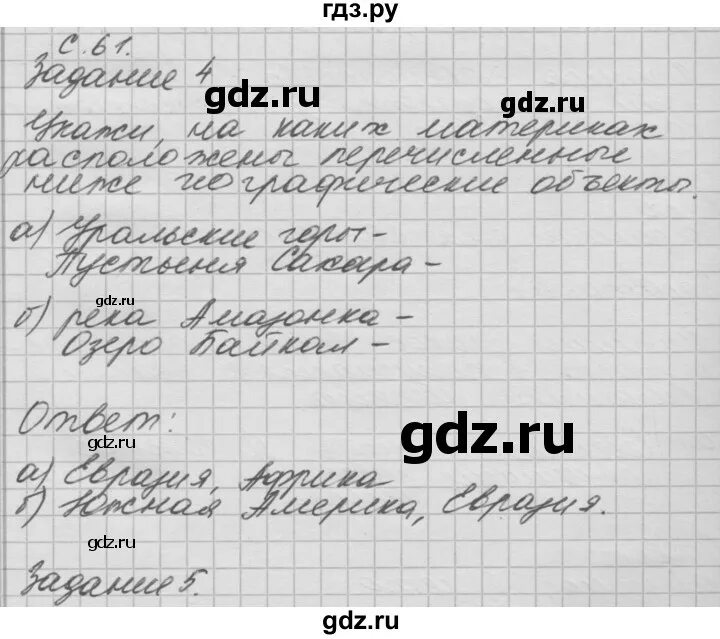 гдз.ру
с. 61.
Задание 4
gdz.ru
Укажи, на каких материках
расположены перечисленные
ниже географические объекты.
а) Уральские горы-
Пустыня Сахара-
gdz.ru
б) река Амазонка-
Озеро Байкал-
Ответ:
gdz.ru
gdz.ru
а) Евразия, Африка
б) Южная Америка, Евразия.
gdz.ru
Задание 5.
gdz.ru